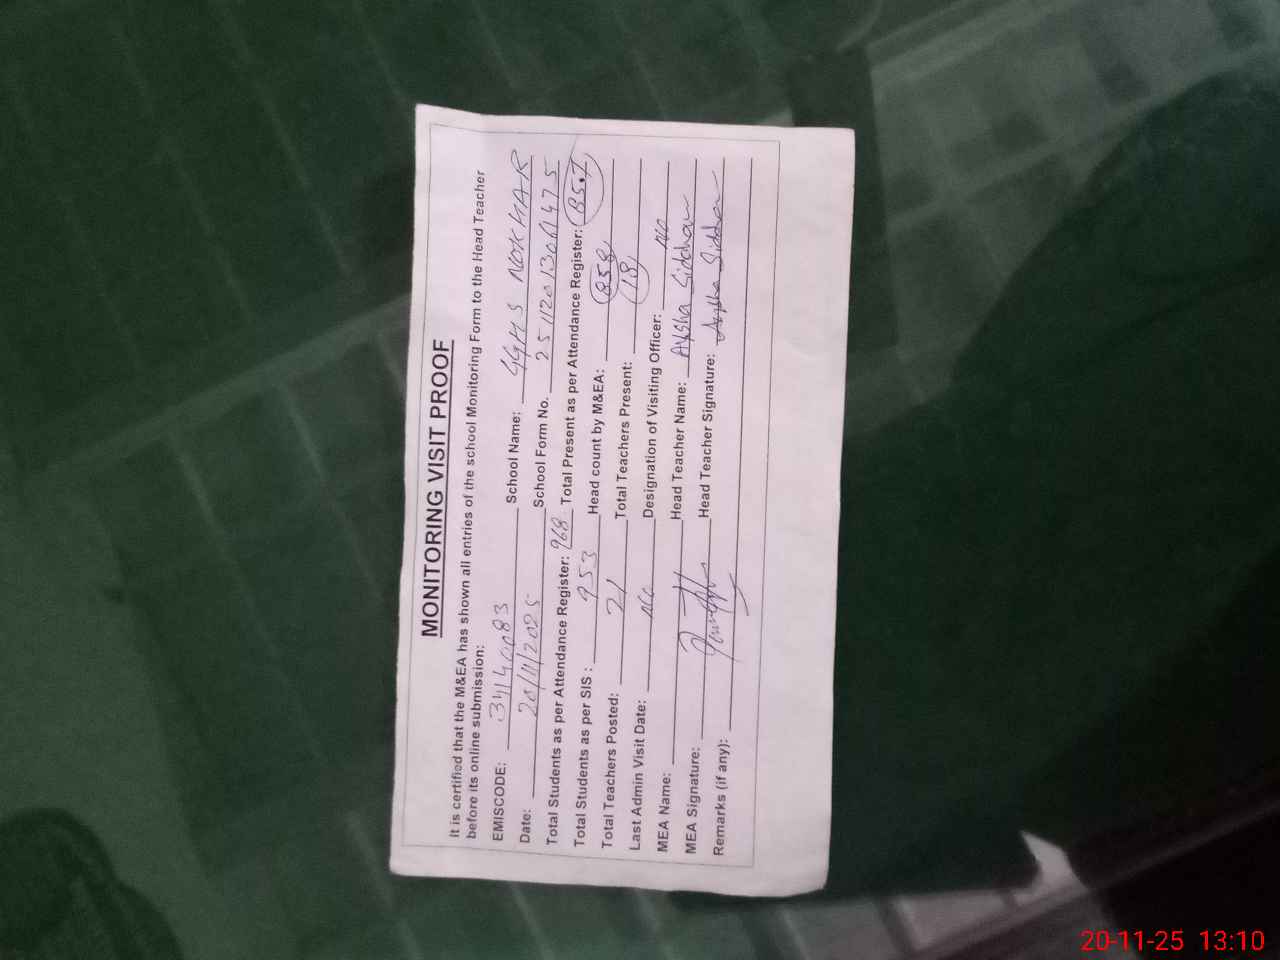 MONITORING VISIT PROOF
It is certified that the M&EA has shown all entries of the school Monitoring Form to the Head Teacher
before its online submission:
EMISCODE: School Name: GGHS NOKHAR
Date: 20/11/2025 School Form No.
Total Students as per Attendance Register: 968 Total Present as per Attendance Register: 857
Total Students as per SIS : 953 Head count by M&EA: 858
Total Teachers Posted: 21 Total Teachers Present: 18
Last Admin Visit Date: Designation of Visiting Officer:
MEA Name: Head Teacher Name: Aysha
MEA Signature: Head Teacher Signature: Aysha
Remarks (if any):
20-11-25 13:10